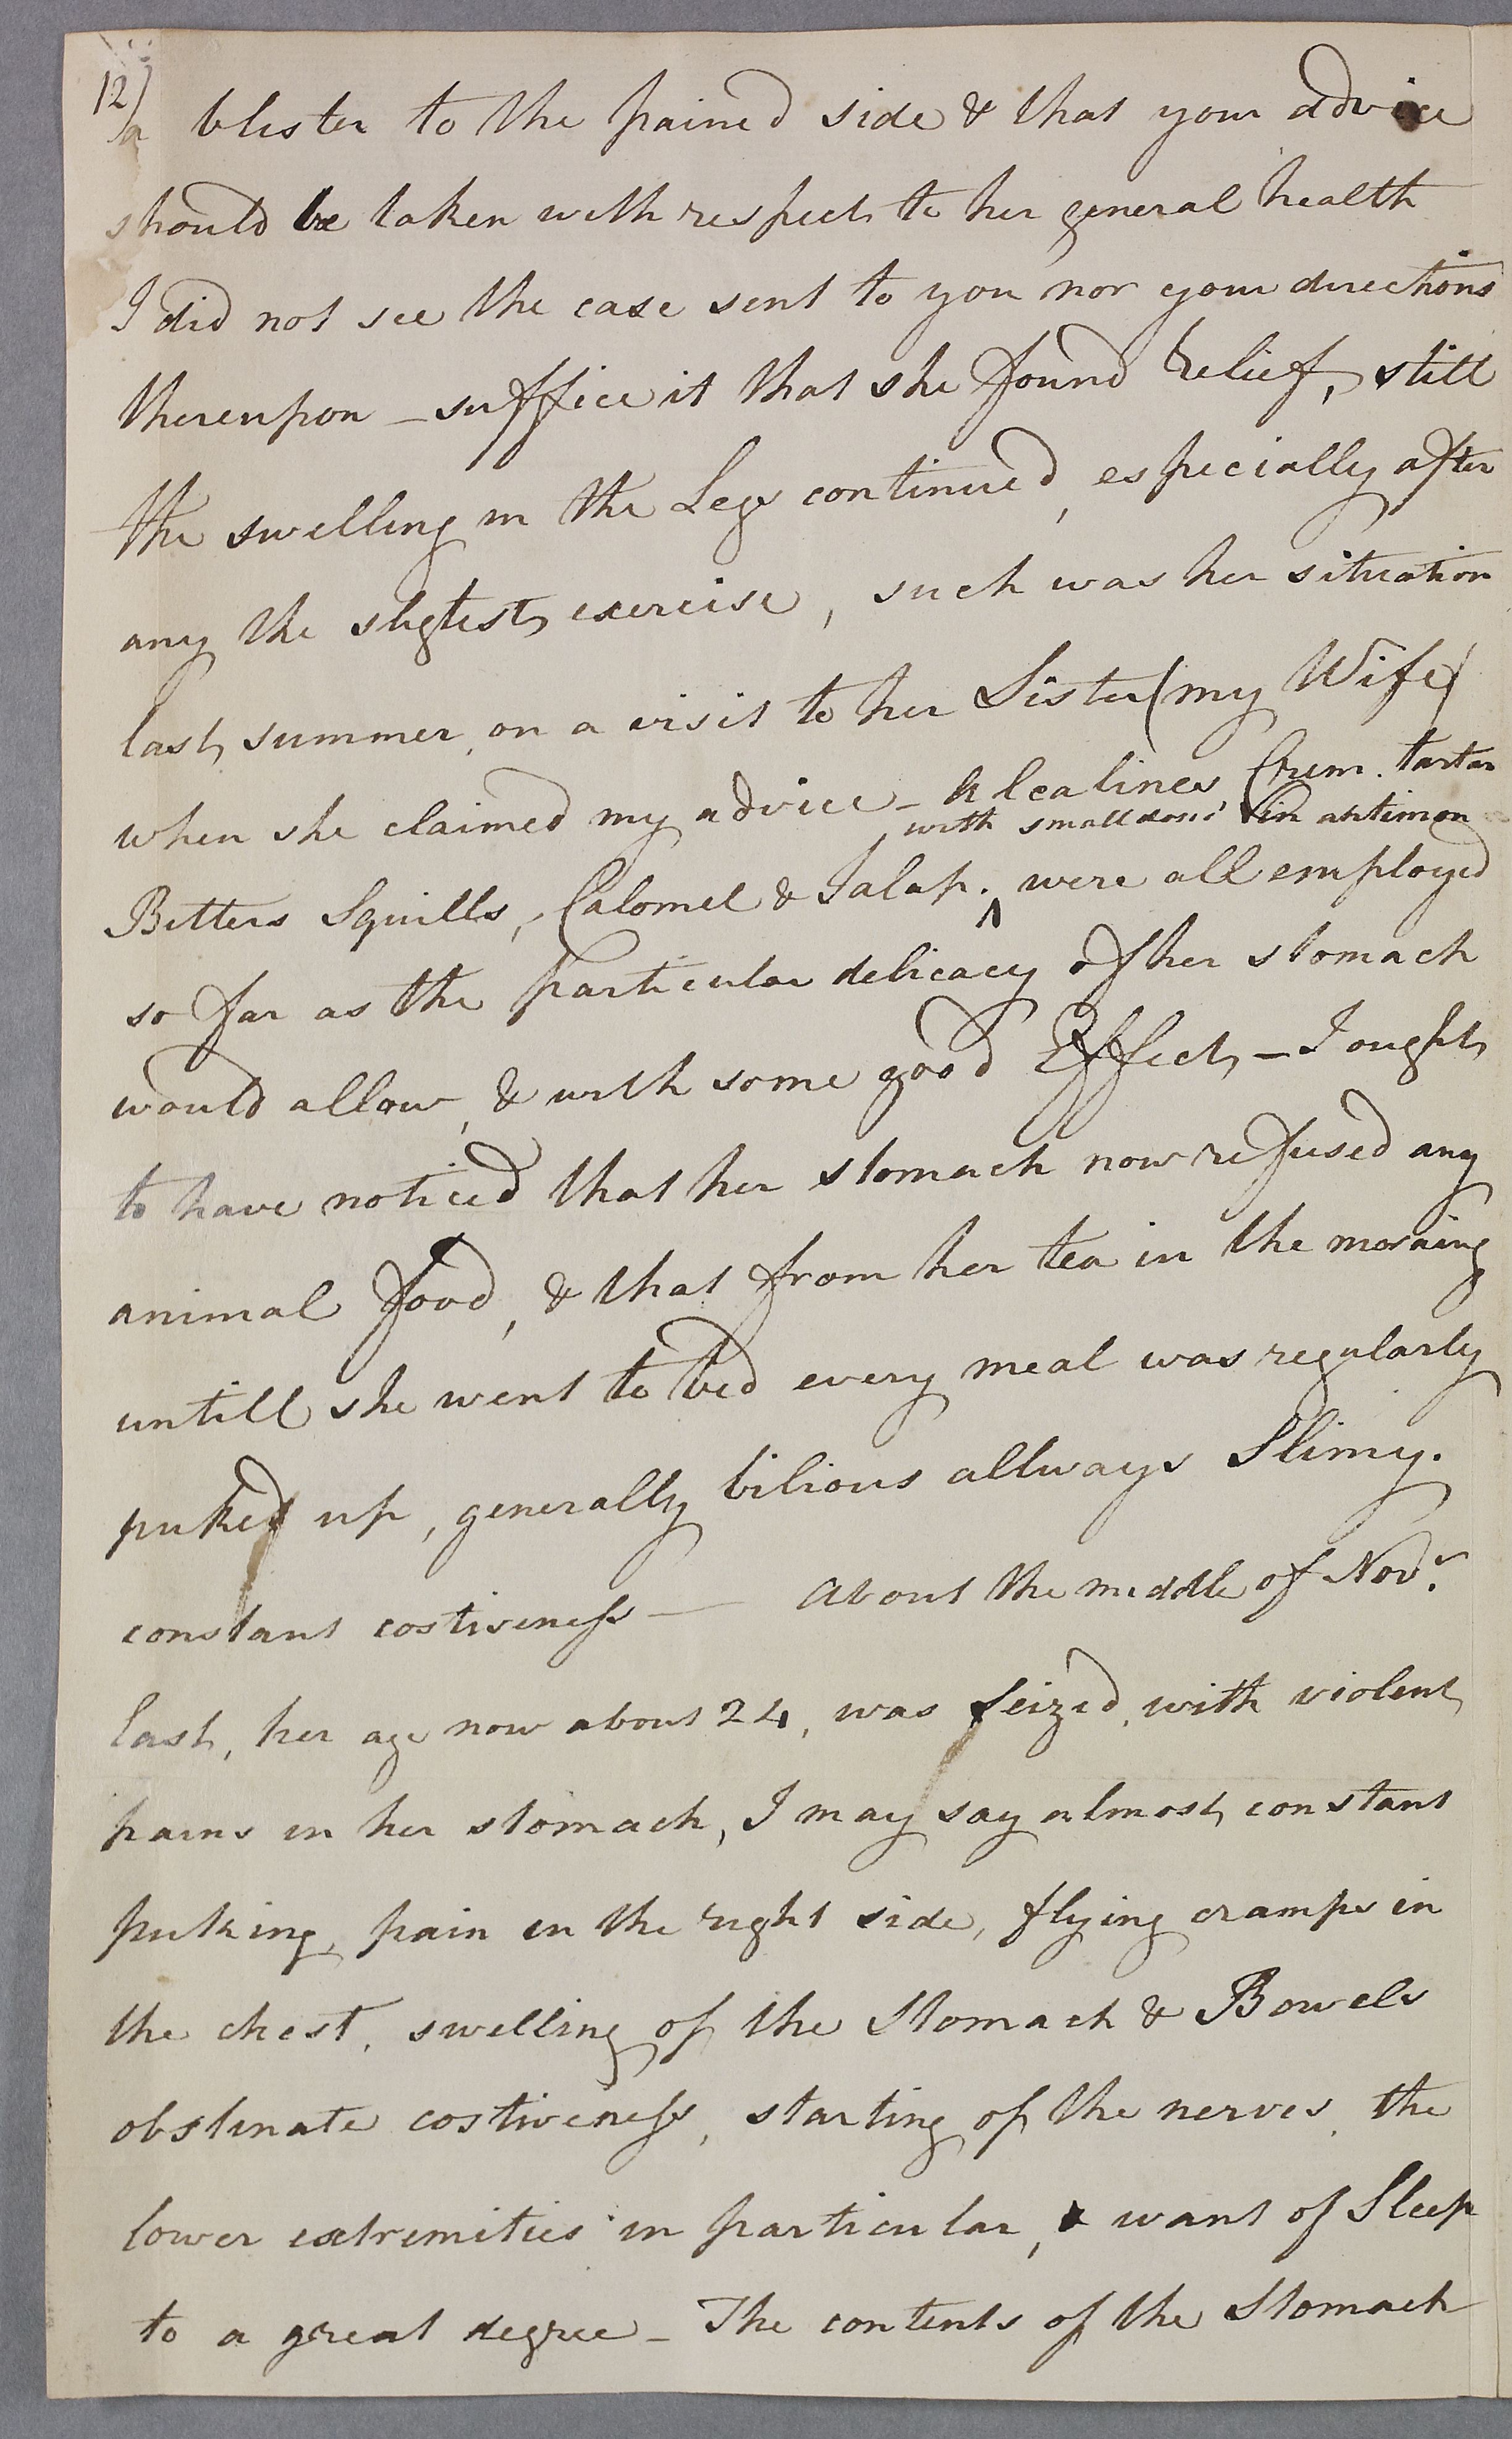 12)
a blister to the pained side & that your advice
should be taken with respect to her general health
I did not see the case sent to you nor your directions
thereupon – suffice it that she found relief, still
the swelling in the Legs continued, especially after
any the sligtest exercise, such was her situation
last summer, on a visit to her Sister (my Wife)
when she claimed my advice – Alcalines Crem. tartar
with small doses Vin antimon
Bitters Squills, Calomel & Jalap. ^ were all employed
so far as the particular delicacy of her stomach
would allow, & with some good Effect, – I ought
to have noticed that her stomach now refused any
animal food, & that from her tea in the morning
untill she went to bed every meal was regularly
puked up, generally bilious allways Slimy.
constant costiveness — About the middle of Novr.
last, her age now about 24, was seized, with violent
pains in her stomach, I may say almost constant
puking, pain in the right side, flying cramps in
the chest, swelling of the Stomach & Bowels
obstinate costiveness, starting of the nerves, the
lower extremities in particular, & want of Sleep
to a great degree – The contents of the Stomach